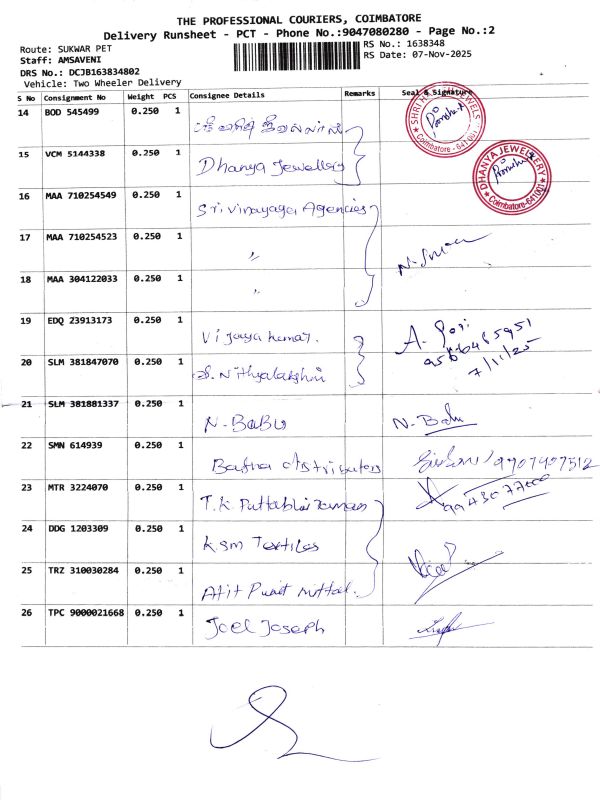 THE PROFESSIONAL COURIERS, COIMBATORE
Delivery Runsheet - PCT - Phone No.:9047080280 - Page No.:2
Route: SUKWAR PET
RS No.: 1638348
Staff: AMSAVENI
RS Date: 07-Nov-2025
DRS No.: DCJB163834802
Vehicle: Two Wheeler Delivery
S No Consignment No Weight PCS Consignee Details Remarks Seal & Signature
14 BOD 545499 0.250 1
Coimbatore - 641 001
15 VCM 5144338 0.250 1 Dhanya Jewellers
DHANYA JEWELLERY
Coimbatore-641001
16 MAA 710254549 0.250 1 Sri vinayaga Agencies
17 MAA 710254523 0.250 1 "
18 MAA 304122033 0.250 1 "
19 EDQ 23913173 0.250 1 Vijaya kumar.
7/11/25
20 SLM 381847070 0.250 1 Nithyalakshmi
21 SLM 381881337 0.250 1 N-BABU N-Babu
22 SMN 614939 0.250 1 Bafna distributors 9707497512
23 MTR 3224070 0.250 1 T.K. 
24 DDG 1203309 0.250 1 KSM Textiles
25 TRZ 310030284 0.250 1
26 TPC 9000021668 0.250 1 Joel Joseph